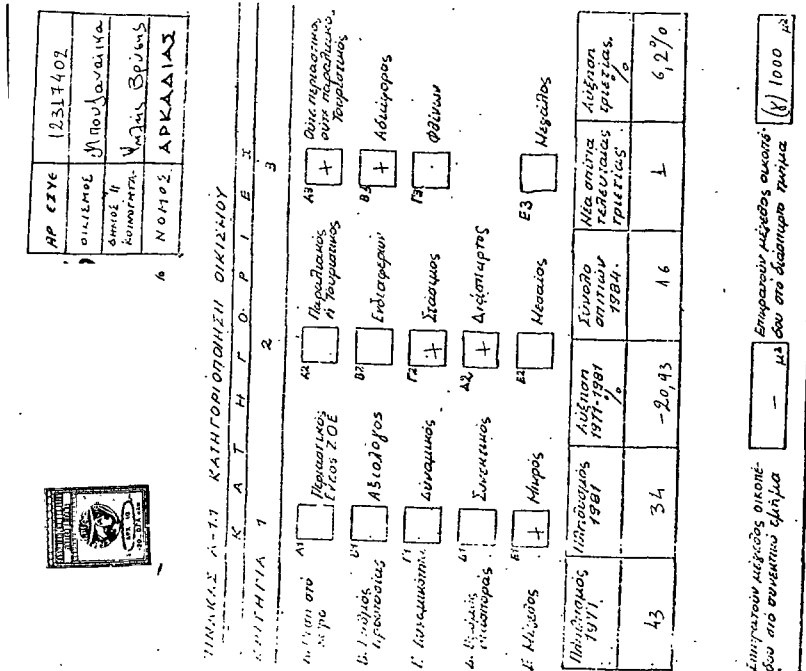 ΑΡ ΕΣΥΕ 12317402
ΟΙΚΙΣΜΟΣ Μπουλαναίικα
ΔΗΜΟΣ Ή ΚΟΙΝΟΤΗΤΑ Ψηλής Βρύσης
ΝΟΜΟΣ ΑΡΚΑΔΙΑΣ
ΠΙΝΑΚΑΣ Α-1.1 ΚΑΤΗΓΟΡΙΟΠΟΙΗΣΗ ΟΙΚΙΣΜΟΥ
ΚΑΤΗΓΟΡΙΕΣ
ΚΡΙΤΗΡΙΑ 1 2 3
Α1 Περιαστικός Εντος ΖΟΕ
Α2 Παραλιακός ή Τουριστικός
Α3 + Ούτε περιαστικός, ούτε παραλιακός, Τουριστικός
Β1 Αξιόλογος
Β2 Ενδιαφέρων
Β3 + Αδιάφορος
Γ1 Δυναμικός
Γ2 + Στάσιμος
Γ3 Φθίνων
Δ1 Συνεκτικός
Δ2 + Διάσπαρτος
Ε. Μέγεθος
Ε1 + Μικρός
Ε2 Μεσαίος
Ε3 Μεγάλος
Πληθυσμός 1971 Πληθυσμός 1981 Αύξηση 1971-1981 % Σύνολο σπιτιών 1984. Νέα σπίτια τελευταίας τριετίας Αύξηση τριετίας. %
43 34 -20,93 16 1 6,2%
Επικρατούν μέγεθος οικοπέδου στο συνεκτικό τμήμα - μ2
Επικρατούν μέγεθος οικοπέδου στο διάσπαρτο τμήμα (γ) 1000 μ2